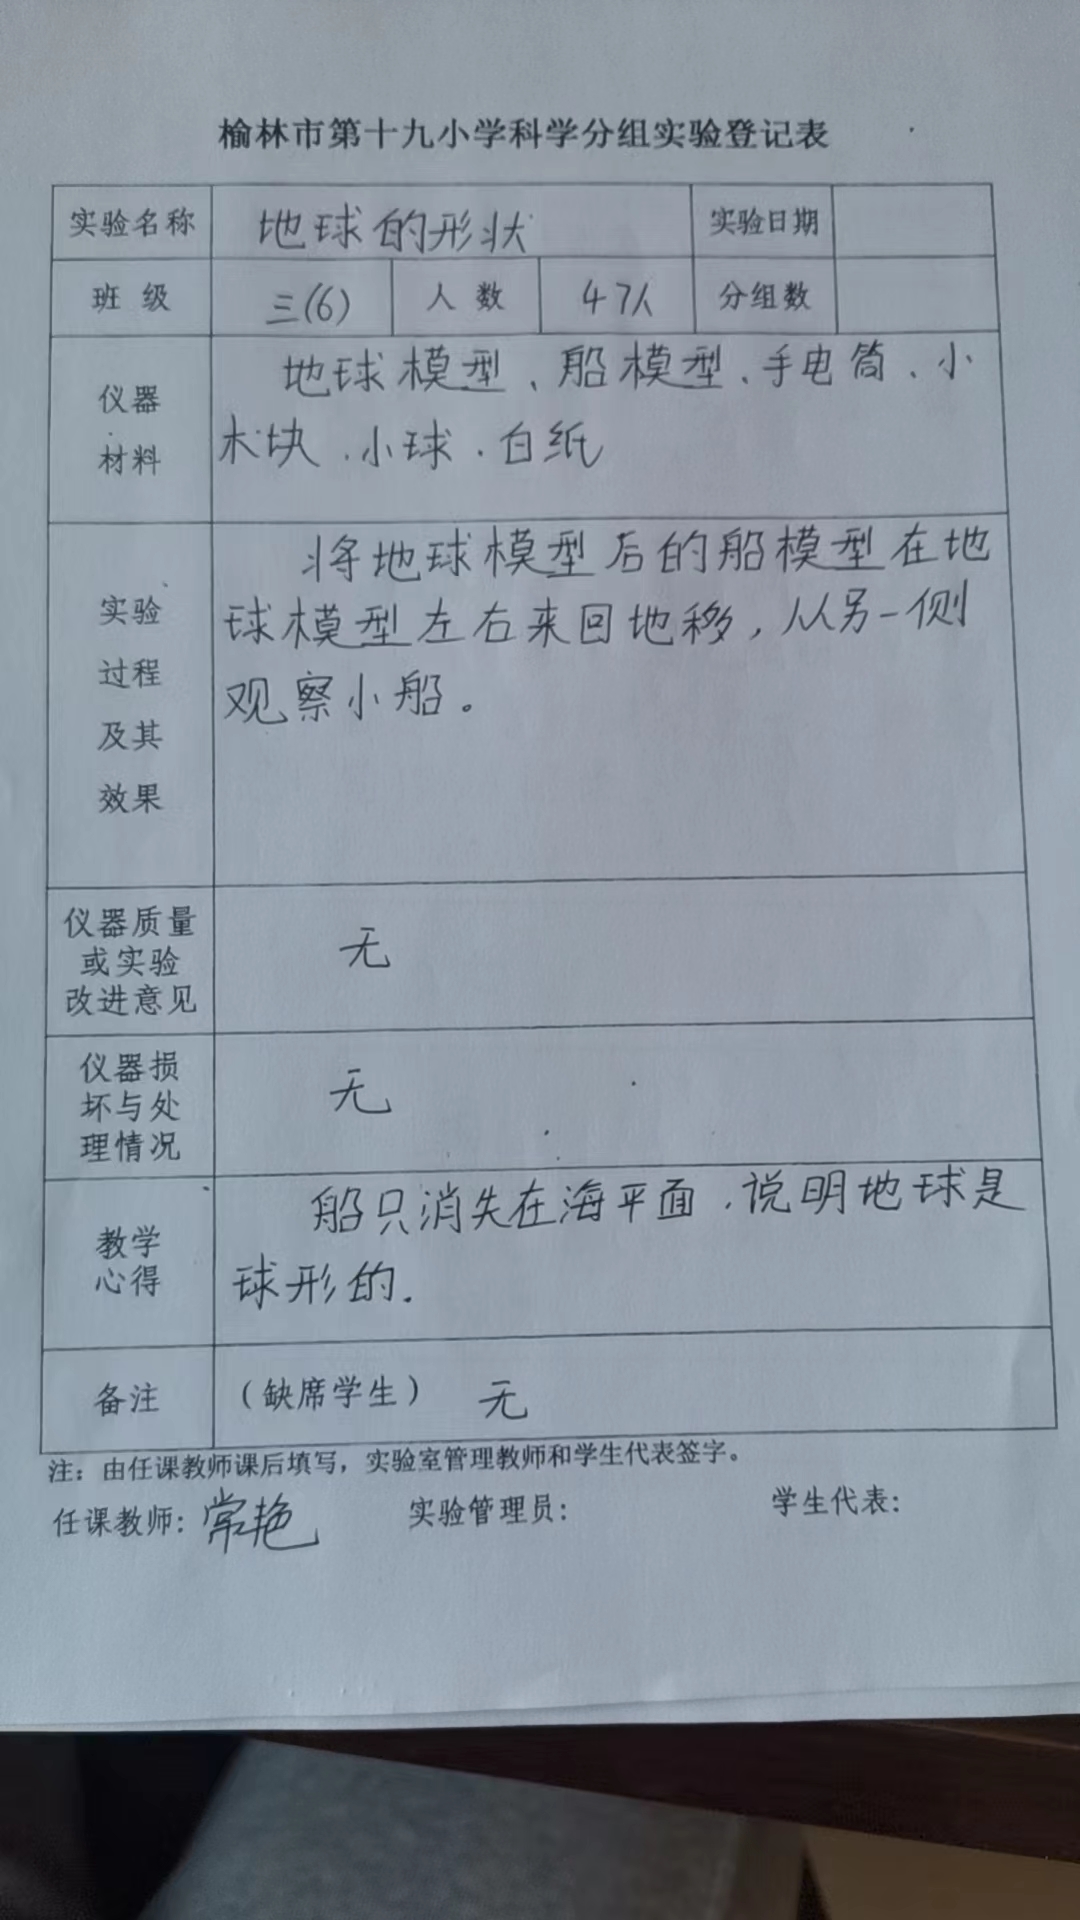 榆林市第十九小学科学分组实验登记表
实验名称 地球的形状 实验日期
班 级 三(6) 人 数 47人 分组数
仪器
材料
地球模型、船模型、手电筒、小
木块、小球、白纸
实验
过程
及其
效果
将地球模型后的船模型在地
球模型左右来回地移，从另一侧
观察小船。
仪器质量
或实验
改进意见
无
仪器损
坏与处
理情况
无
教学
心得
船只消失在海平面，说明地球是
球形的.
备注 （缺席学生） 无
注：由任课教师课后填写，实验室管理教师和学生代表签字。
任课教师：常艳 实验管理员： 学生代表：